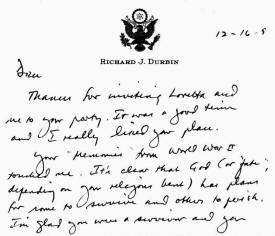 RICHARD J. DURBIN
12-16-9
Thanks for inviting Loretta and
me to your party. It was a good time
and I really liked your place.
Your "Memories" from World War II
touched me. It's clear that God (or "fate",
depending on your religious bent) has plans
for some to survive and others to perish.
I'm glad you were a survivor and you